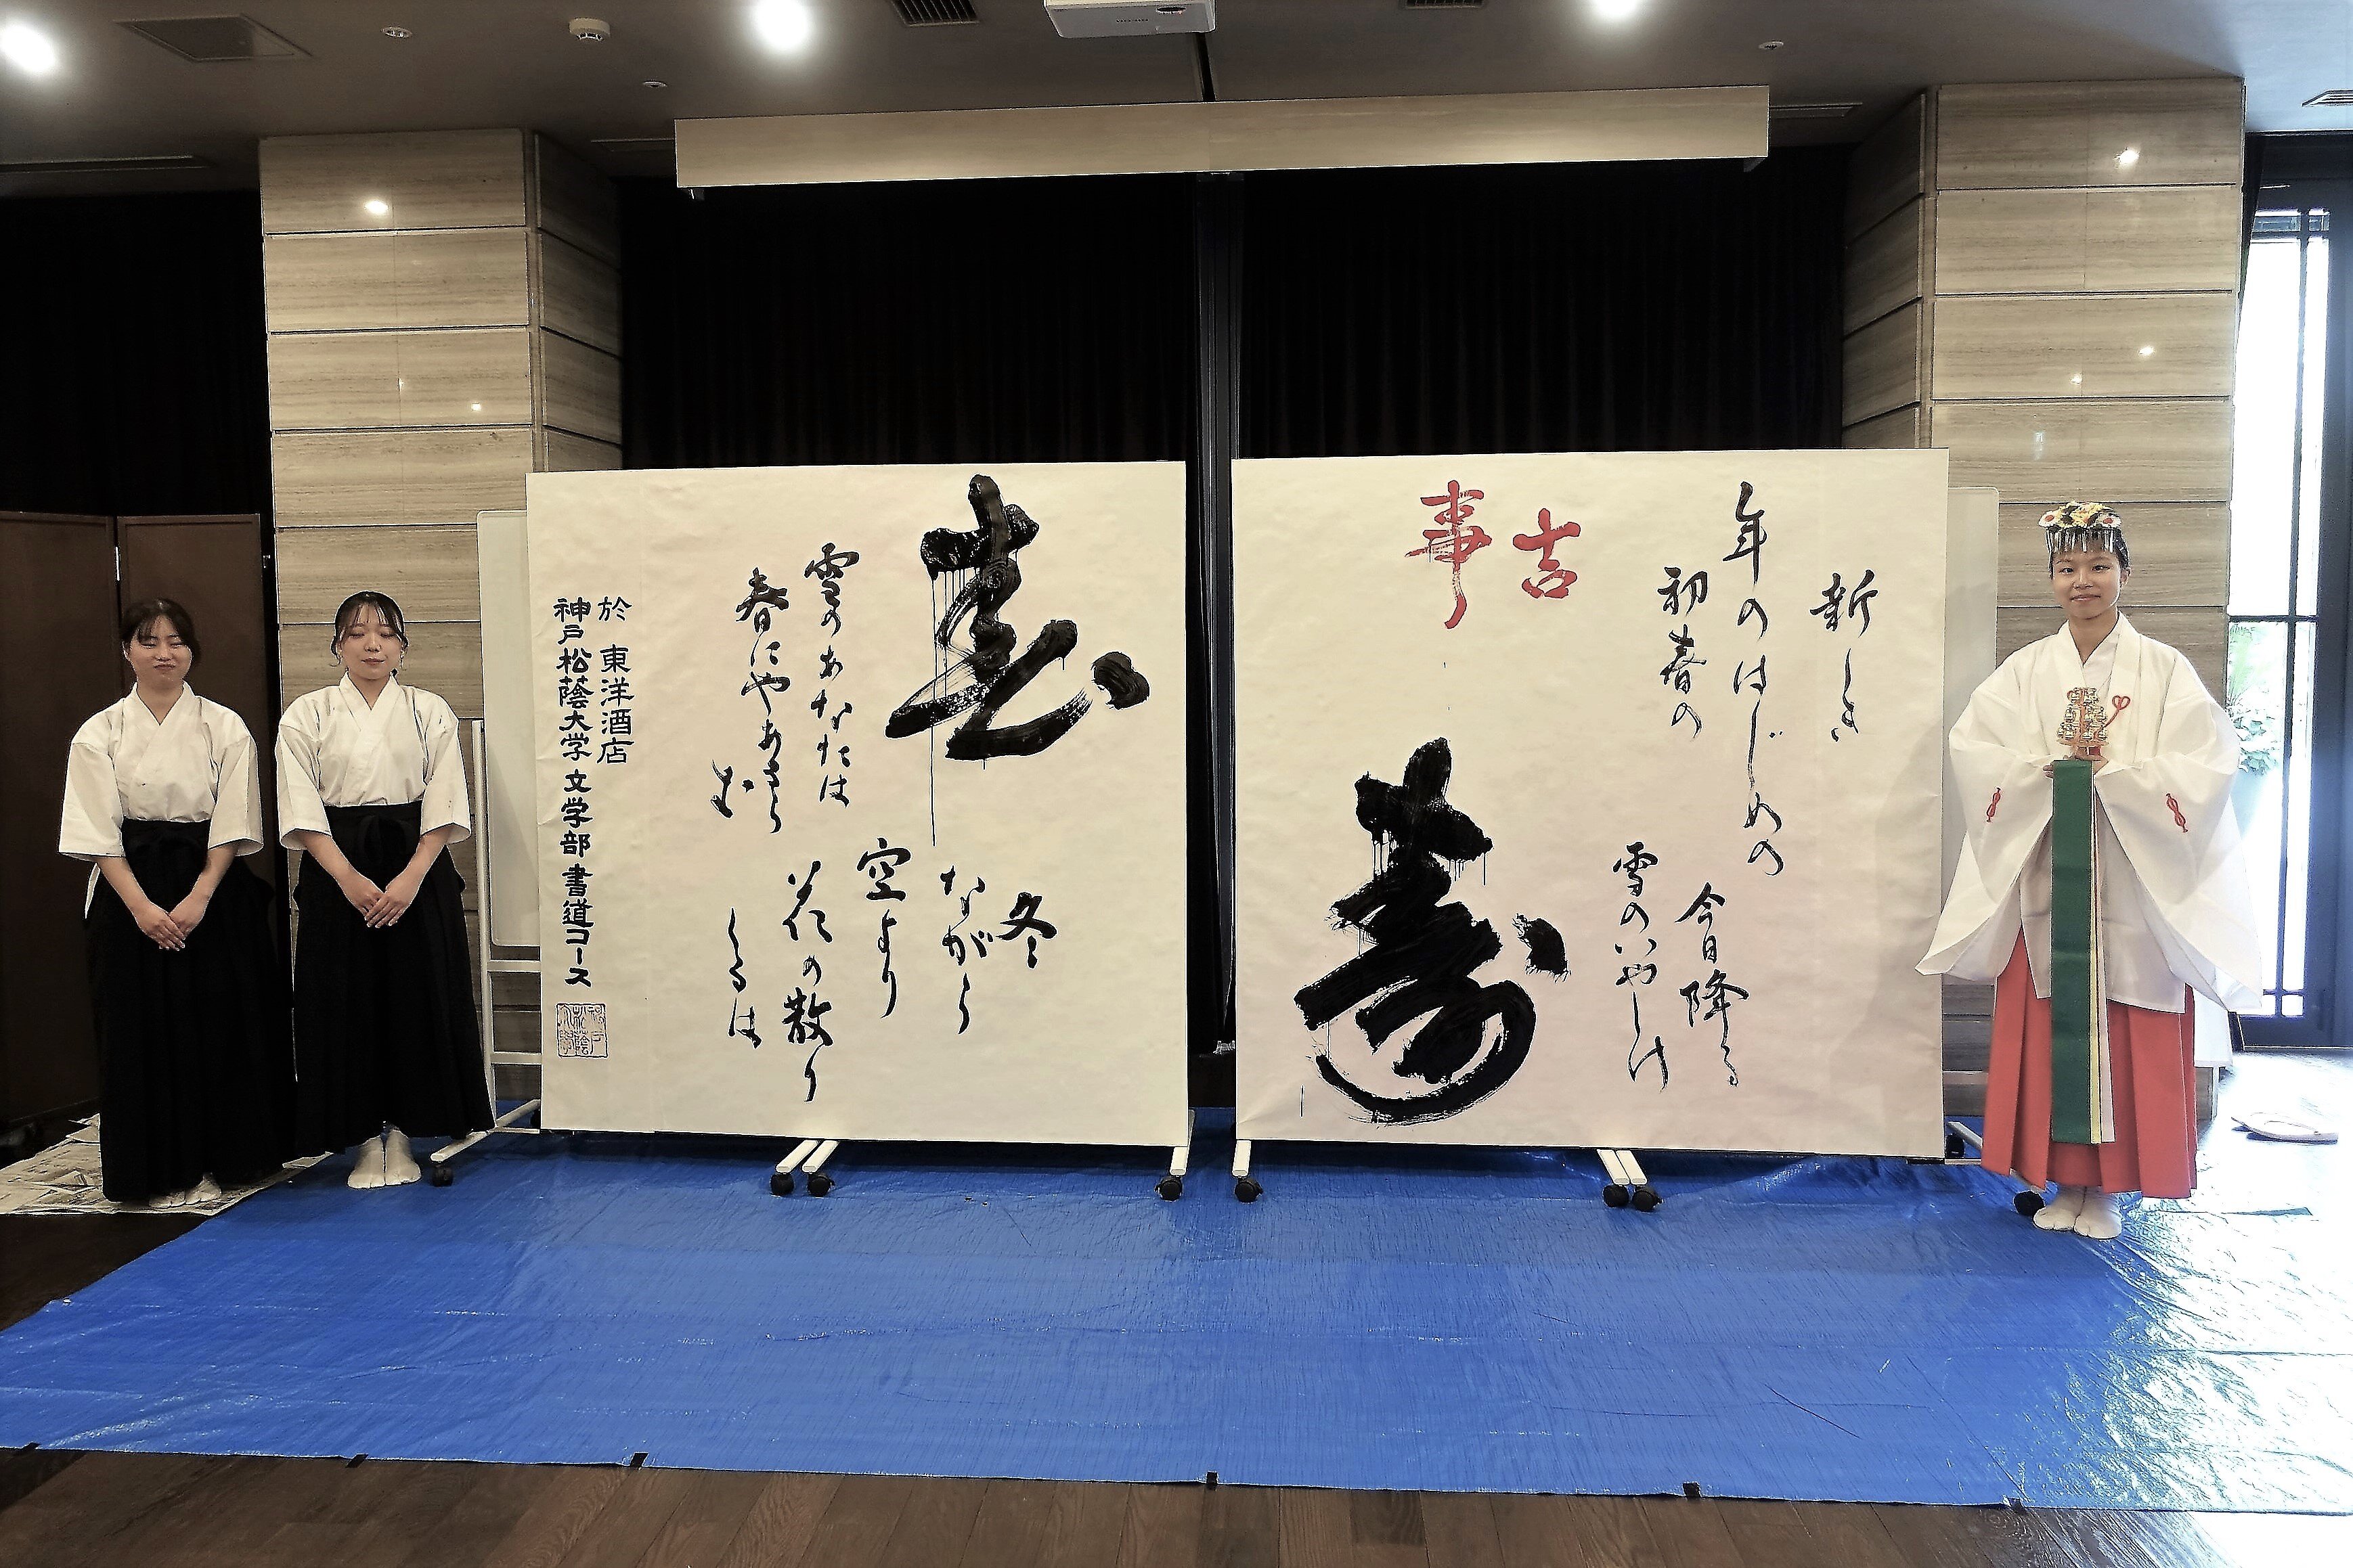 新しき
年のはじめの
初春の
今日降る
雪のいやしけ
吉
事
寿
春
冬
ながら
空より
花の散り
くるは
雪のあなたは
春にやあるら
む
於 東洋酒店
神戸松蔭大学 文学部 書道コース